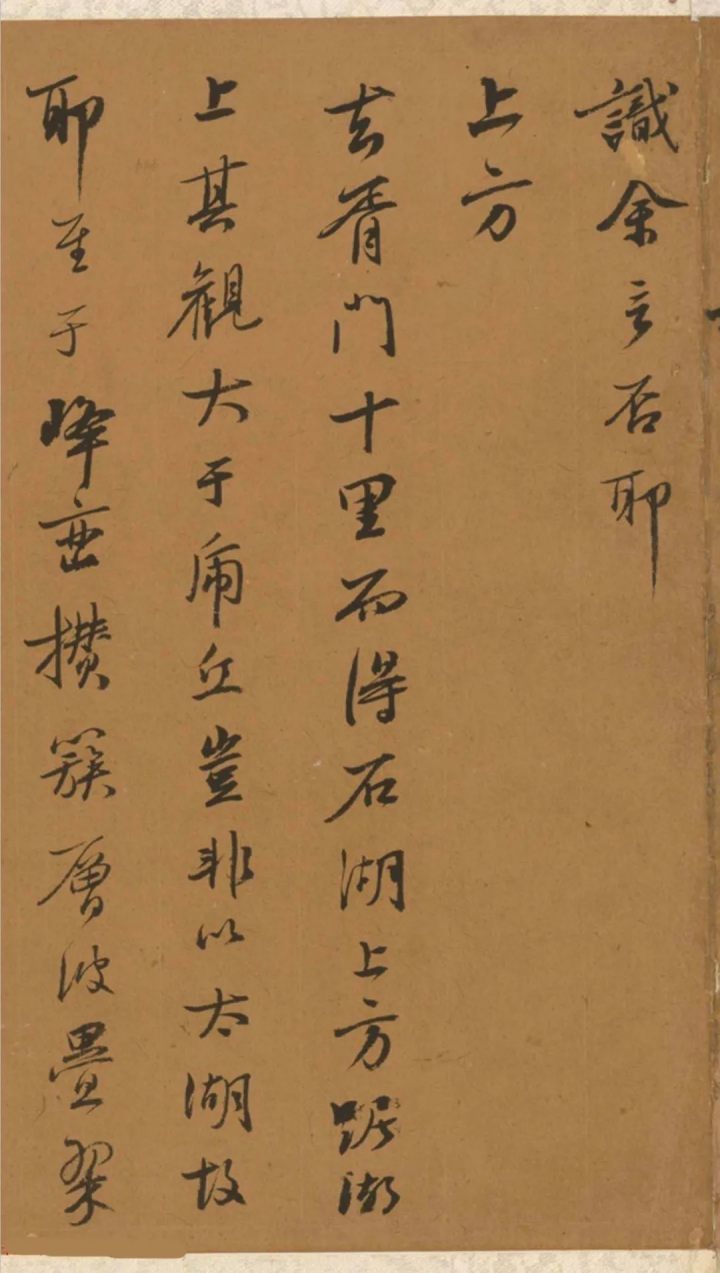 識余言否耶
上方
去胥門十里而得石湖上方踞湖
上其觀大于虎丘豈非以太湖故
耶至于峰巒攅簇層波疊翠